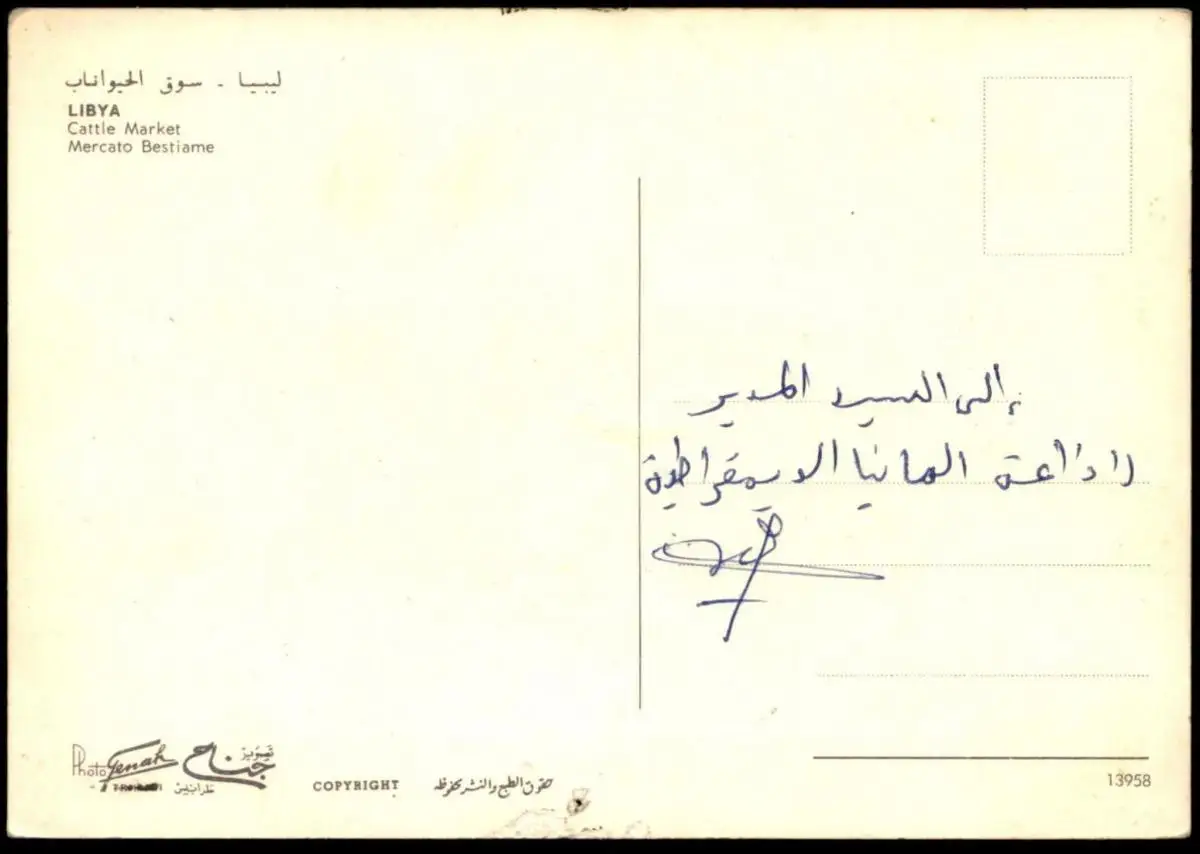 ليبيا - سوق الحيواناب
LIBYA
Cattle Market
Mercato Bestiame
إلى السيد المدير
إذاعة المانيا الديمقراطية
Photo Genah
تصوير جناح
طرابلس
COPYRIGHT
حقوق الطبع والنشر محفوظه
13958